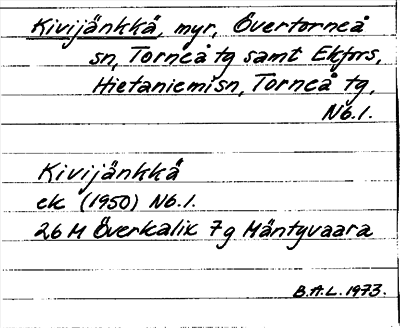 Kivijänkkä, myr, Övertorneå
sn, Torneå tg samt Ekfors,
Hietaniemi sn, Torneå tg,
Nb.l.
Kivijänkkä
ek (1950) Nb.l.
26 M Överkalix 7g Mäntyvaara
B.A.L. 1973.